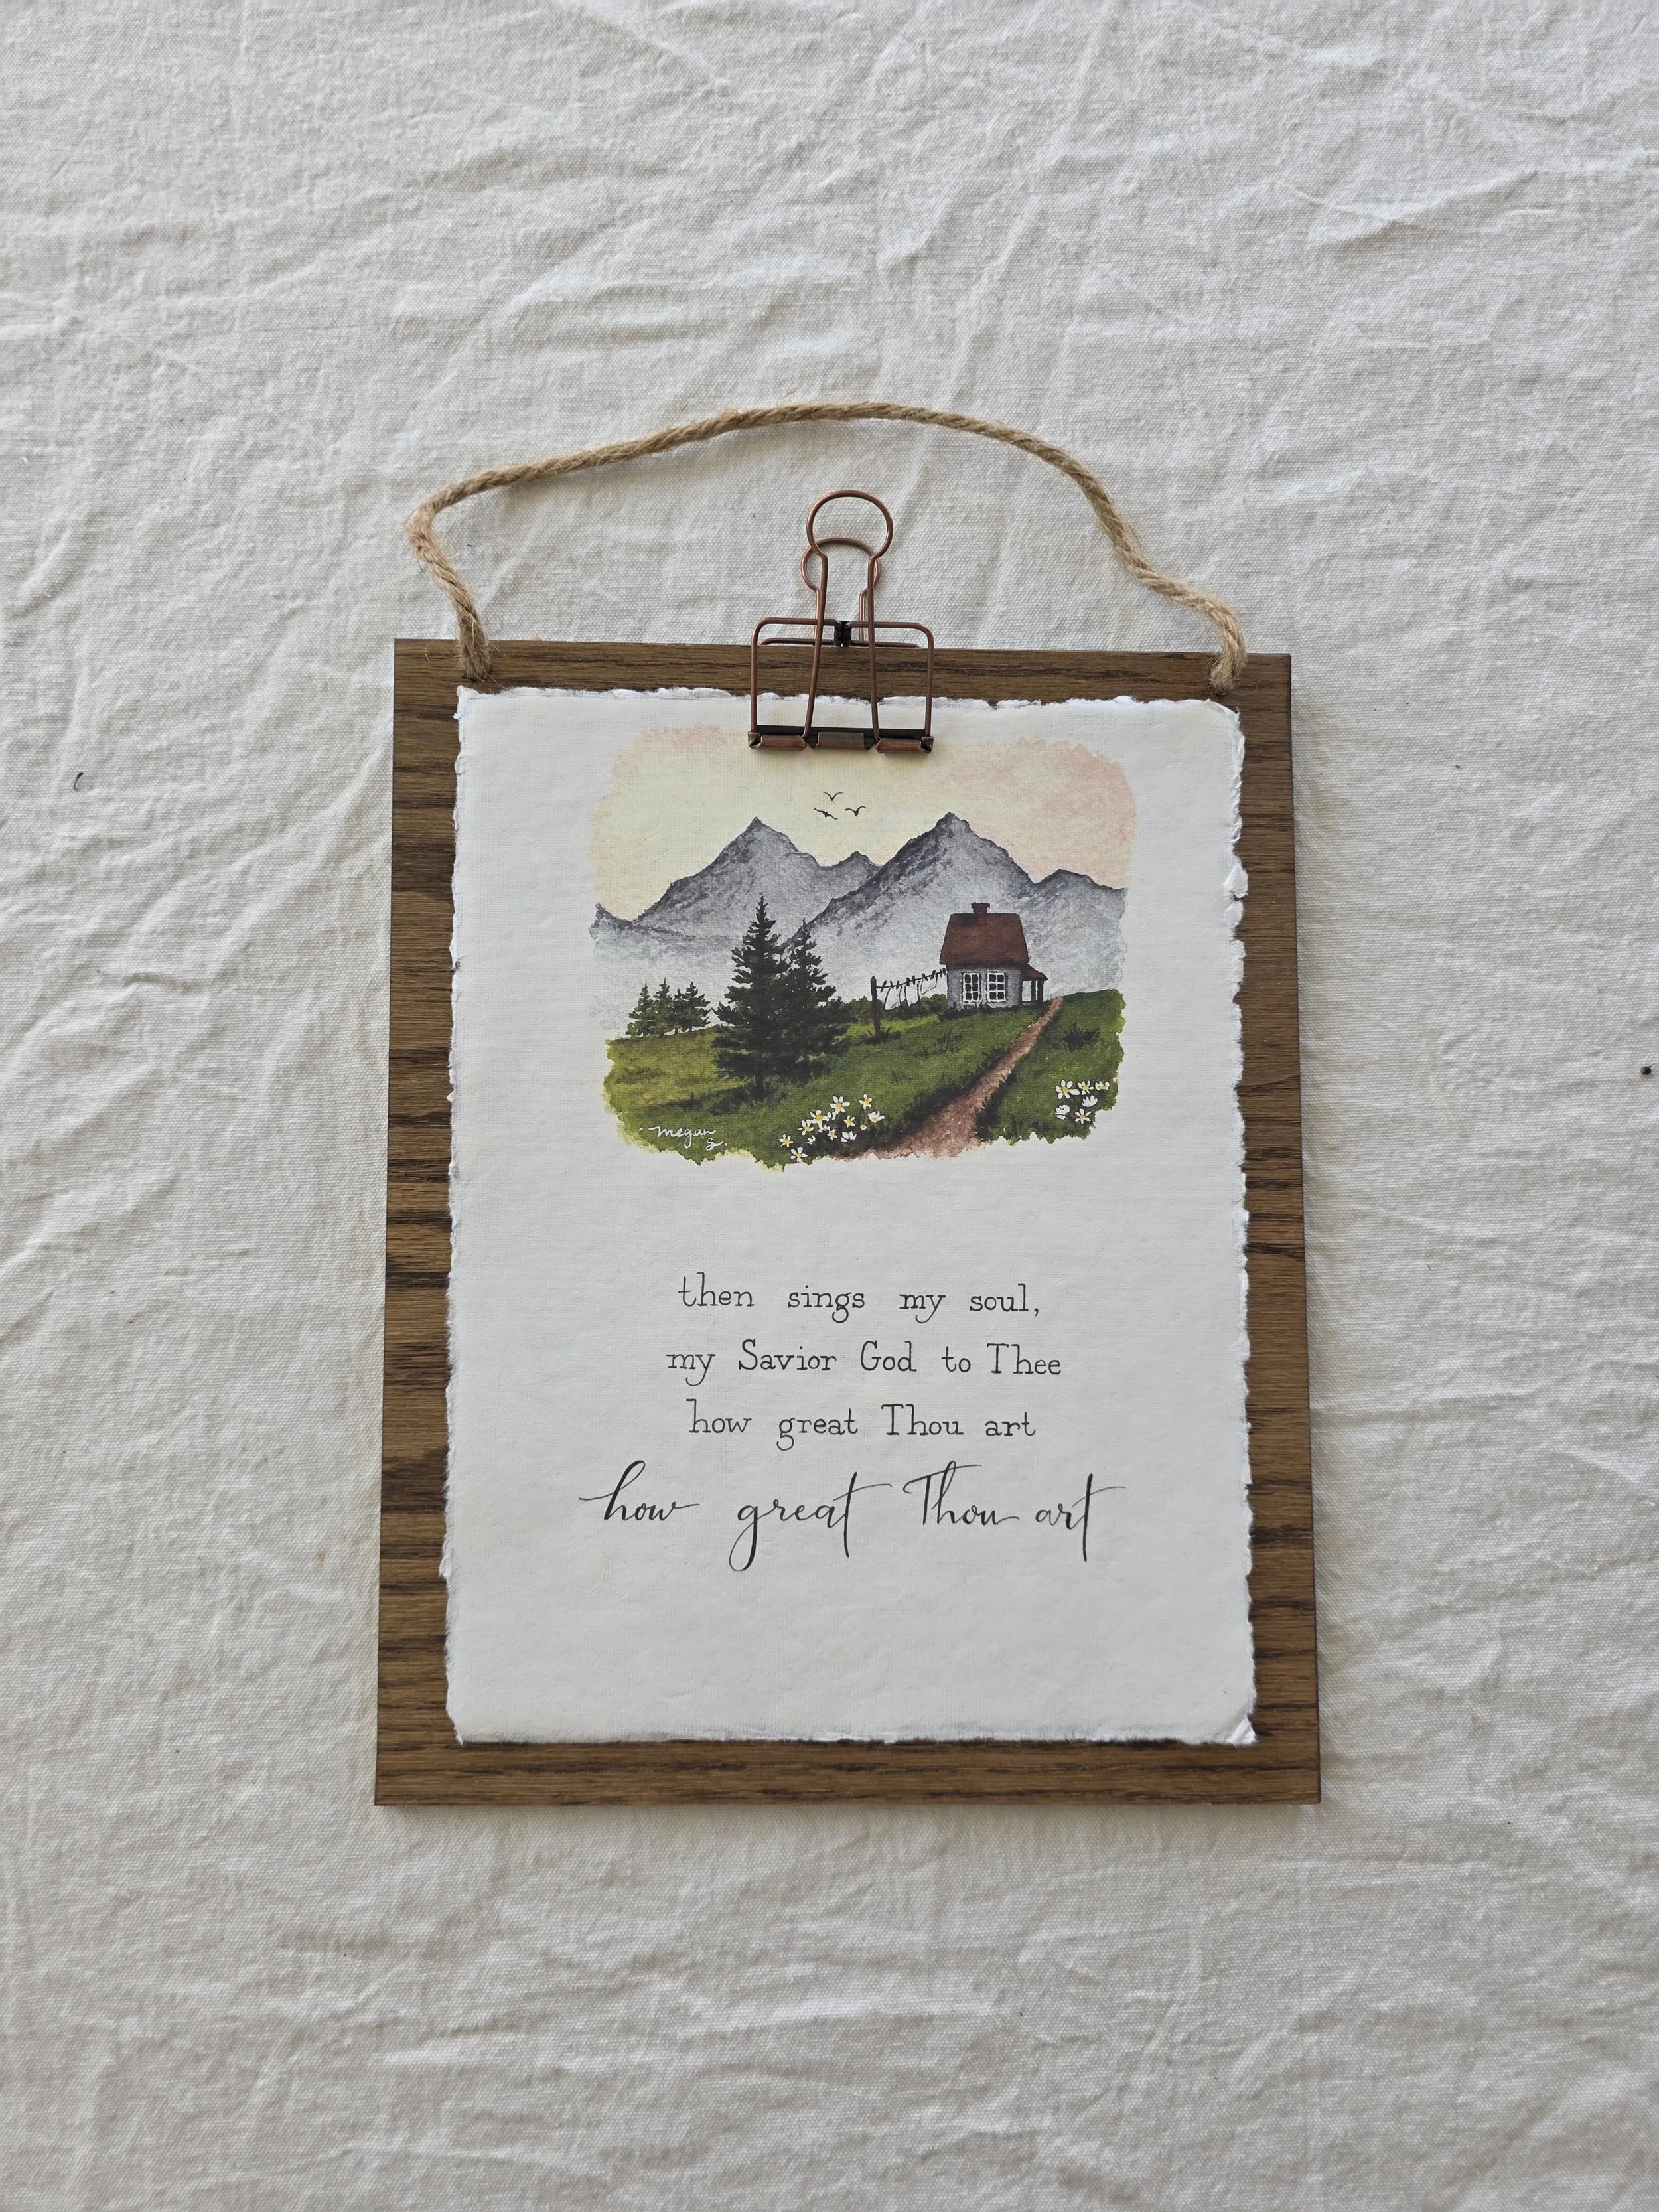 megan
j.
then sings my soul,
my Savior God to Thee
how great Thou art
how great Thou art